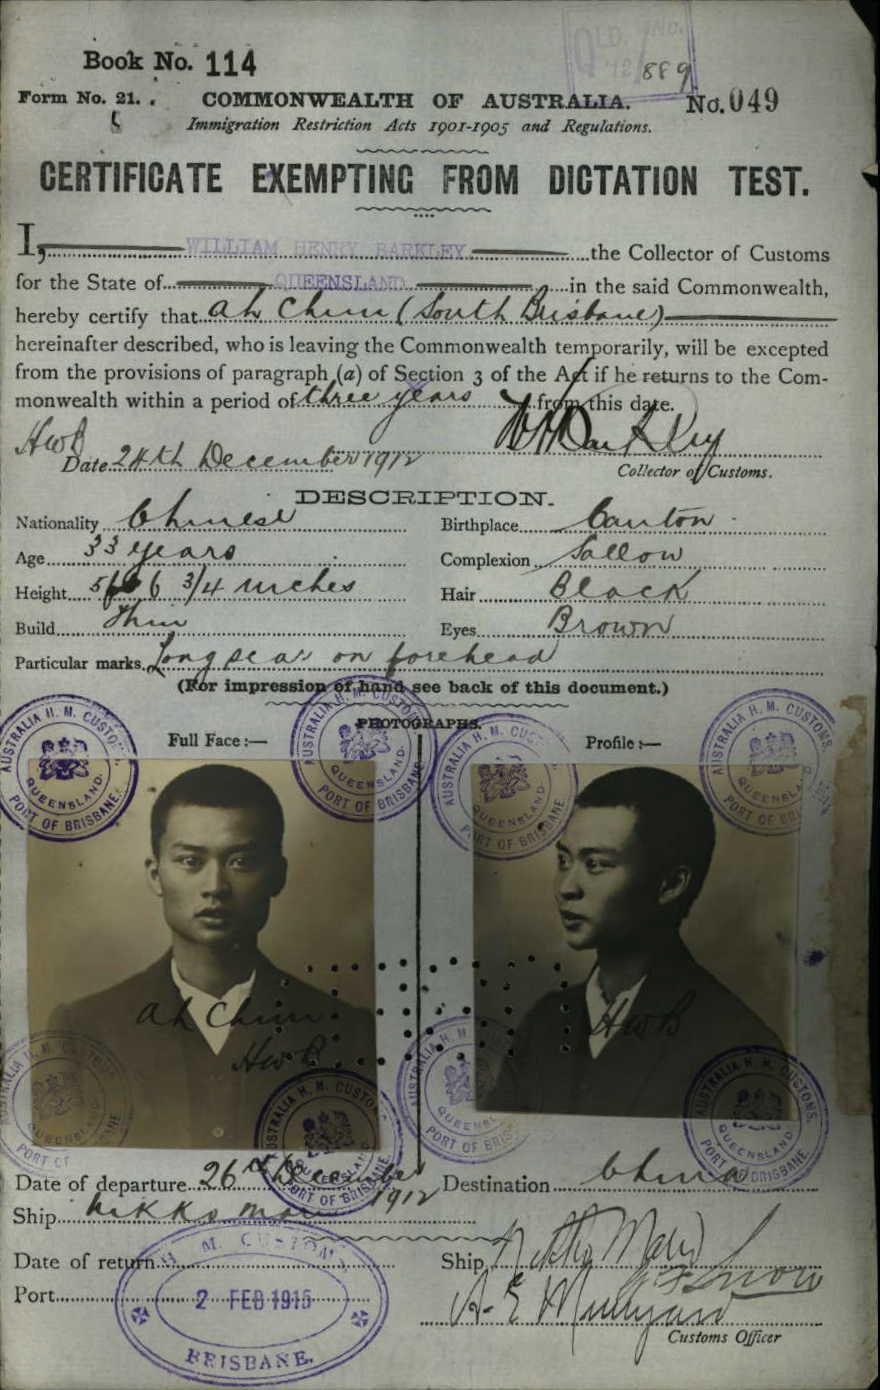 QLD. No.
889
Book No. 114
Form No. 21. COMMONWEALTH OF AUSTRALIA. No. 049
Immigration Restriction Acts 1901-1905 and Regulations.
CERTIFICATE EXEMPTING FROM DICTATION TEST.
I, WILLIAM HENRY BARKLEY the Collector of Customs
for the State of QUEENSLAND in the said Commonwealth,
hereby certify that Ah Chun (South Brisbane)
hereinafter described, who is leaving the Commonwealth temporarily, will be excepted
from the provisions of paragraph (a) of Section 3 of the Act if he returns to the Com-
monwealth within a period of three years from this date.
HWB WHBarkley
Date 24th December 1912 Collector of Customs.
DESCRIPTION.
Nationality Chinese Birthplace Canton
Age 33 years Complexion Sallow
Height 5ft 6 3/4 inches Hair Black
Build Thin Eyes Brown
Particular marks Long scar on forehead
(For impression of hand see back of this document.)
PHOTOGRAPHS.
Full Face:— Profile:—
AUSTRALIA H. M. CUSTOMS QUEENSLAND. PORT OF BRISBANE.
AUSTRALIA H. M. CUSTOMS QUEENSLAND PORT OF BRISBANE
AUSTRALIA H. M. CUSTOMS QUEENSLAND. PORT OF BRISBANE
AUSTRALIA H. M. CUSTOMS. QUEENSLAND PORT OF BRISBANE
Ah Chun HWB
HWB
Date of departure 26th December 1912 Destination China
Ship Nikko Maru
Date of return Ship Nikko Maru
Port
H. M. CUSTOMS
2 FEB 1915
BRISBANE.
Customs Officer